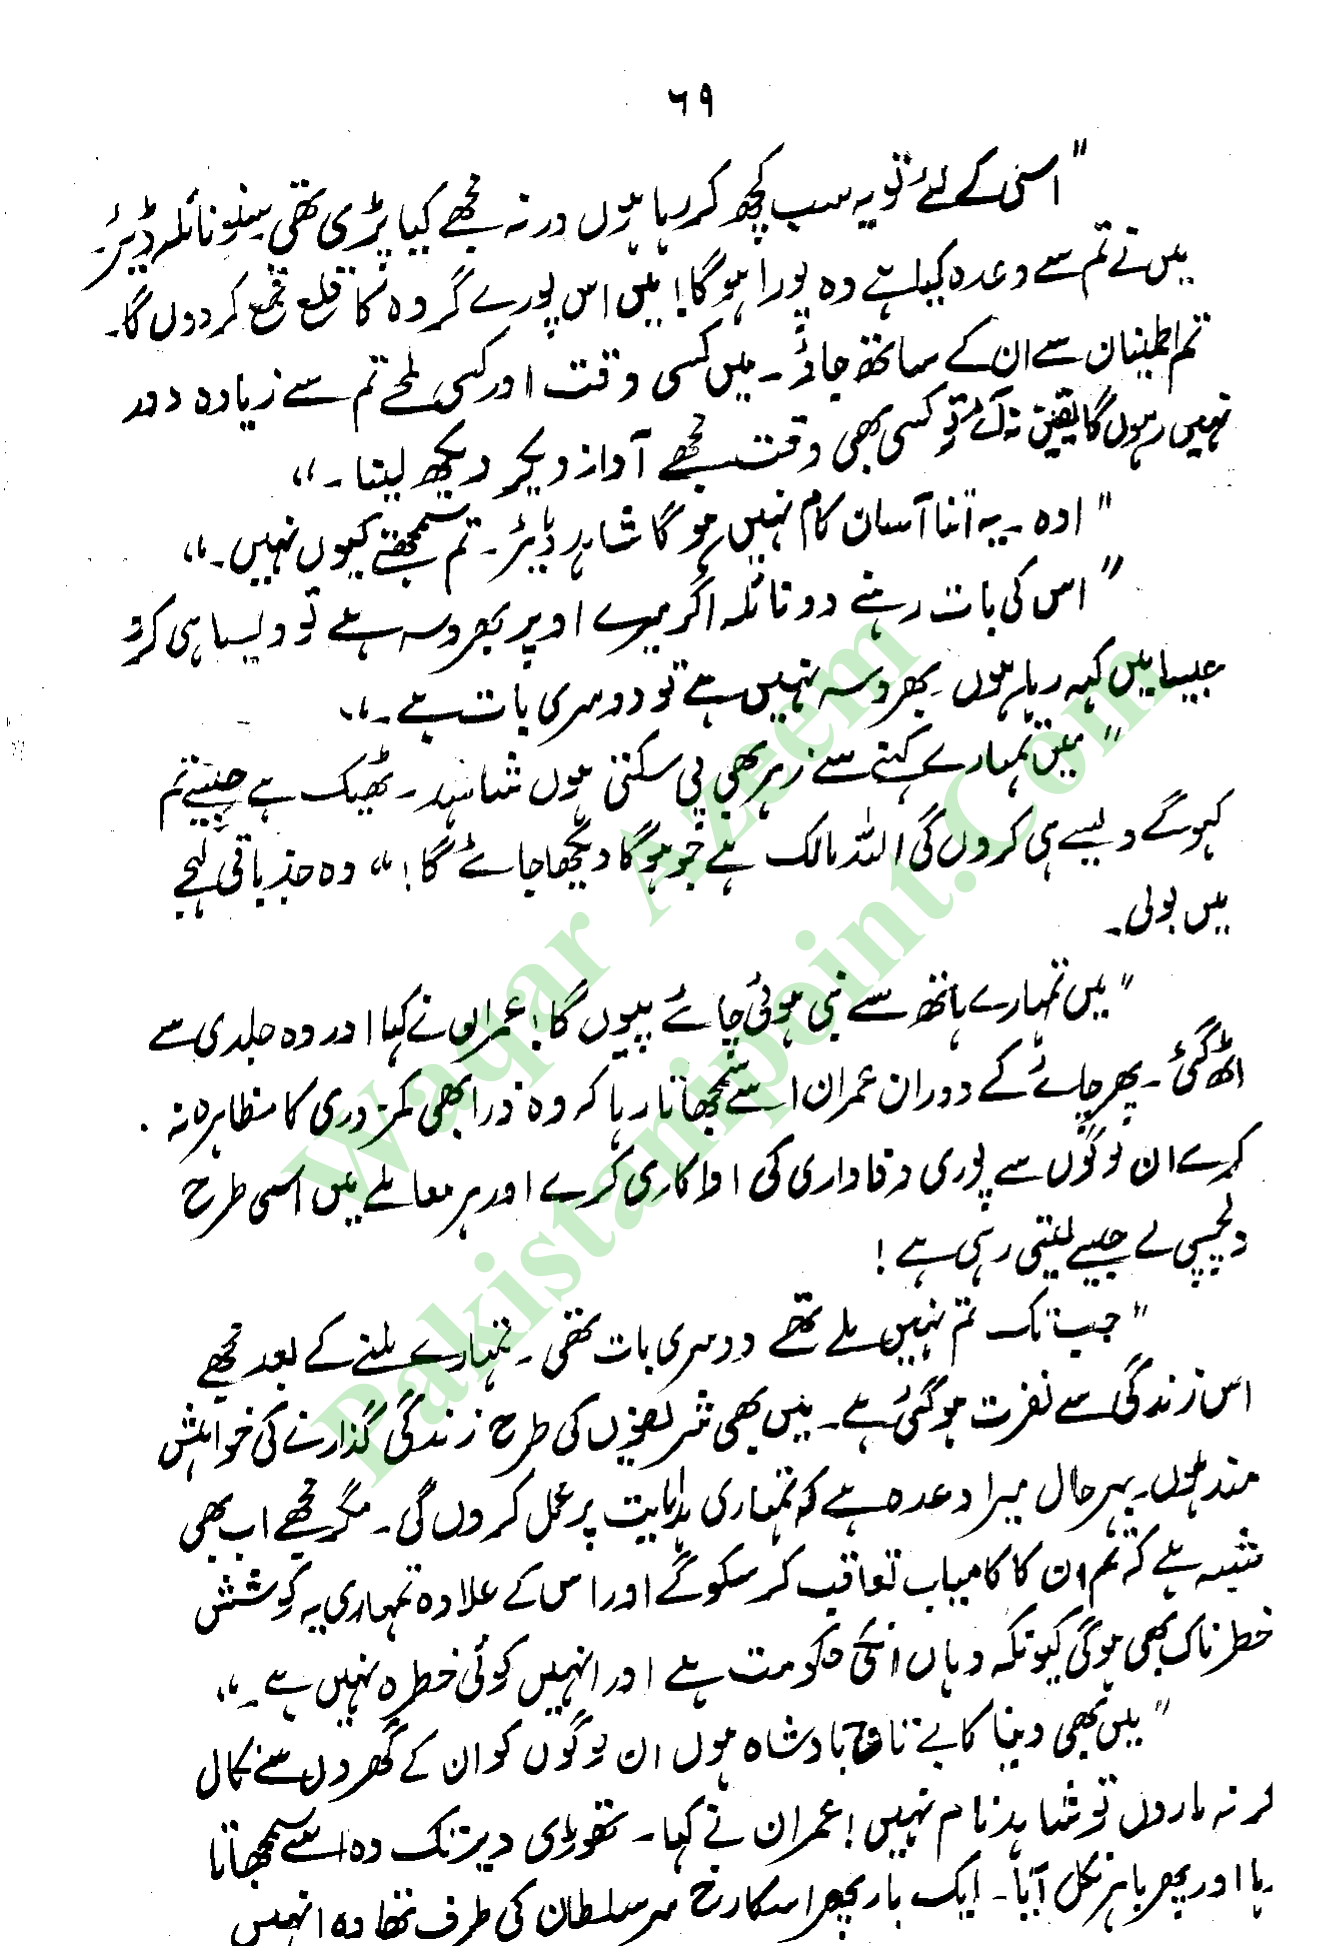 ۶۹
"اسی کے لئے تو یہ سب کچھ کر رہا ہوں ورنہ مجھے کیا پڑی تھی سنو نائلہ ڈیئر۔
میں نے تم سے وعدہ کیا ہے وہ پورا ہوگا! میں اس پورے گروہ کا قلع قمع کر دوں گا۔
تم اطمینان سے ان کے ساتھ جاؤ۔ میں کسی وقت اور کسی لمحے تم سے زیادہ دور
نہیں رہوں گا یقین نہ آئے تو کسی بھی وقت مجھے آواز دیکر دیکھ لینا۔"
"اوہ۔ یہ اتنا آسان کام نہیں ہوگا شاہد ڈیئر۔ تم سمجھتے کیوں نہیں۔"
"اس کی بات رہنے دو نائلہ اگر میرے اوپر بھروسہ ہے تو ویسا ہی کرو
جیسا میں کہہ رہا ہوں۔ بھروسہ نہیں ہے تو دوسری بات ہے۔"
"میں تمہارے کہنے سے زہر بھی پی سکتی ہوں شاہد۔ ٹھیک ہے جیسے تم
کہو گے ویسے ہی کروں گی اللہ مالک ہے جو ہوگا دیکھا جائے گا!" وہ جذباتی لہجے
میں بولی۔
"میں تمہارے ہاتھ سے بنی ہوئی چائے پیوں گا! عمران نے کہا اور وہ جلدی سے
اٹھ گئی۔ پھر چائے کے دوران عمران اسے سمجھاتا رہا کہ وہ ذرا بھی کمزوری کا مظاہرہ نہ
کرے ان لوگوں سے پوری وفاداری کی اداکاری کرے اور ہر معاملے میں اسی طرح
دلچسپی لے جیسے لیتی رہی ہے!
"جب تک تم نہیں ملے تھے دوسری بات تھی۔ تمہارے ملنے کے بعد مجھے
اس زندگی سے نفرت ہوگئی ہے۔ میں بھی شریفوں کی طرح زندگی گذارنے کی خواہش
مند ہوں۔ بہر حال میرا وعدہ ہے کہ تمہاری ہدایت پر عمل کروں گی۔ مگر مجھے اب بھی
شبہ ہے کہ تم ان کا کامیاب تعاقب کر سکو گے اور اس کے علاوہ تمہاری یہ کوشش
خطرناک بھی ہوگی کیونکہ وہاں انکی حکومت ہے اور انہیں کوئی خطرہ نہیں ہے۔"
"میں بھی دنیا کا بے تاج بادشاہ ہوں ان لوگوں کو ان کے گھروں سے نکال
کر نہ ماروں تو شاہد نام نہیں! عمران نے کہا۔ تھوڑی دیر تک وہ اسے سمجھاتا
رہا اور پھر باہر نکل آیا۔ ایک بار پھر اس کا رخ سر سلطان کی طرف تھا وہ انہیں
Waqar Azeem
Pakistanipoint.Com